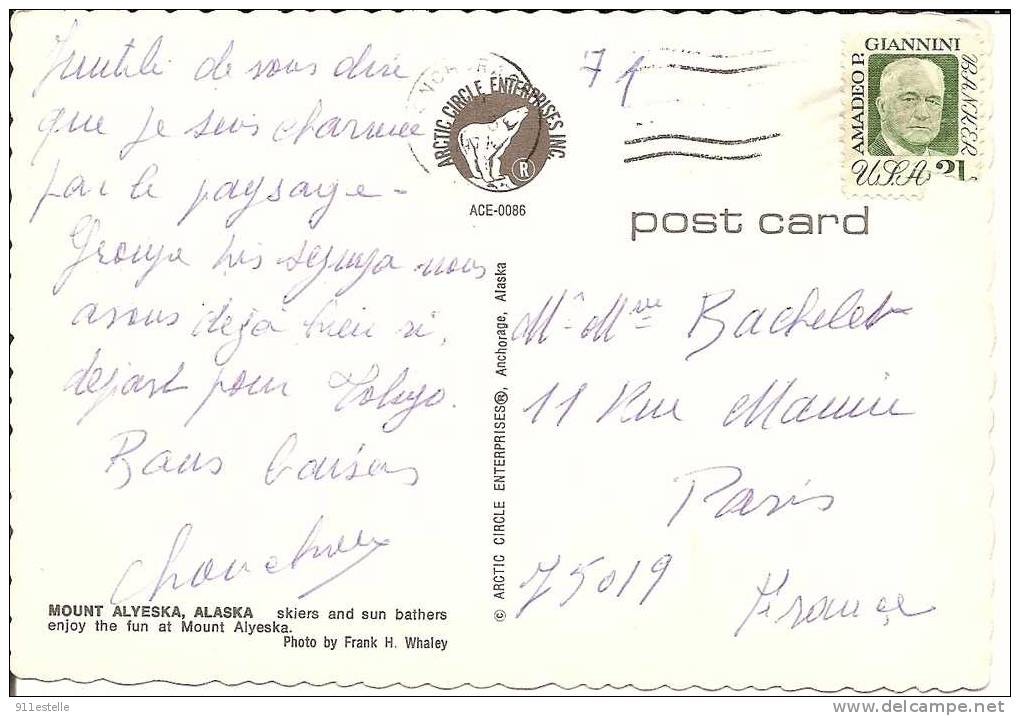 Inutile de vous dire
que je suis charmée
par le paysage -
Groupe très sympa nous
avons déjà bien ri,
départ pour Tokyo.
Bons baisers
Chouchoux
MOUNT ALYESKA, ALASKA skiers and sun bathers
enjoy the fun at Mount Alyeska.
Photo by Frank H. Whaley
ARCTIC CIRCLE ENTERPRISES INC.
®
ACE-0086
© ARCTIC CIRCLE ENTERPRISES®, Anchorage, Alaska
AMADEO P. GIANNINI BANKER
USA 21
post card
Mr Mme Bachelet
11 Rue Manin
Paris
75019
France
911estelle
www.delcampe.net